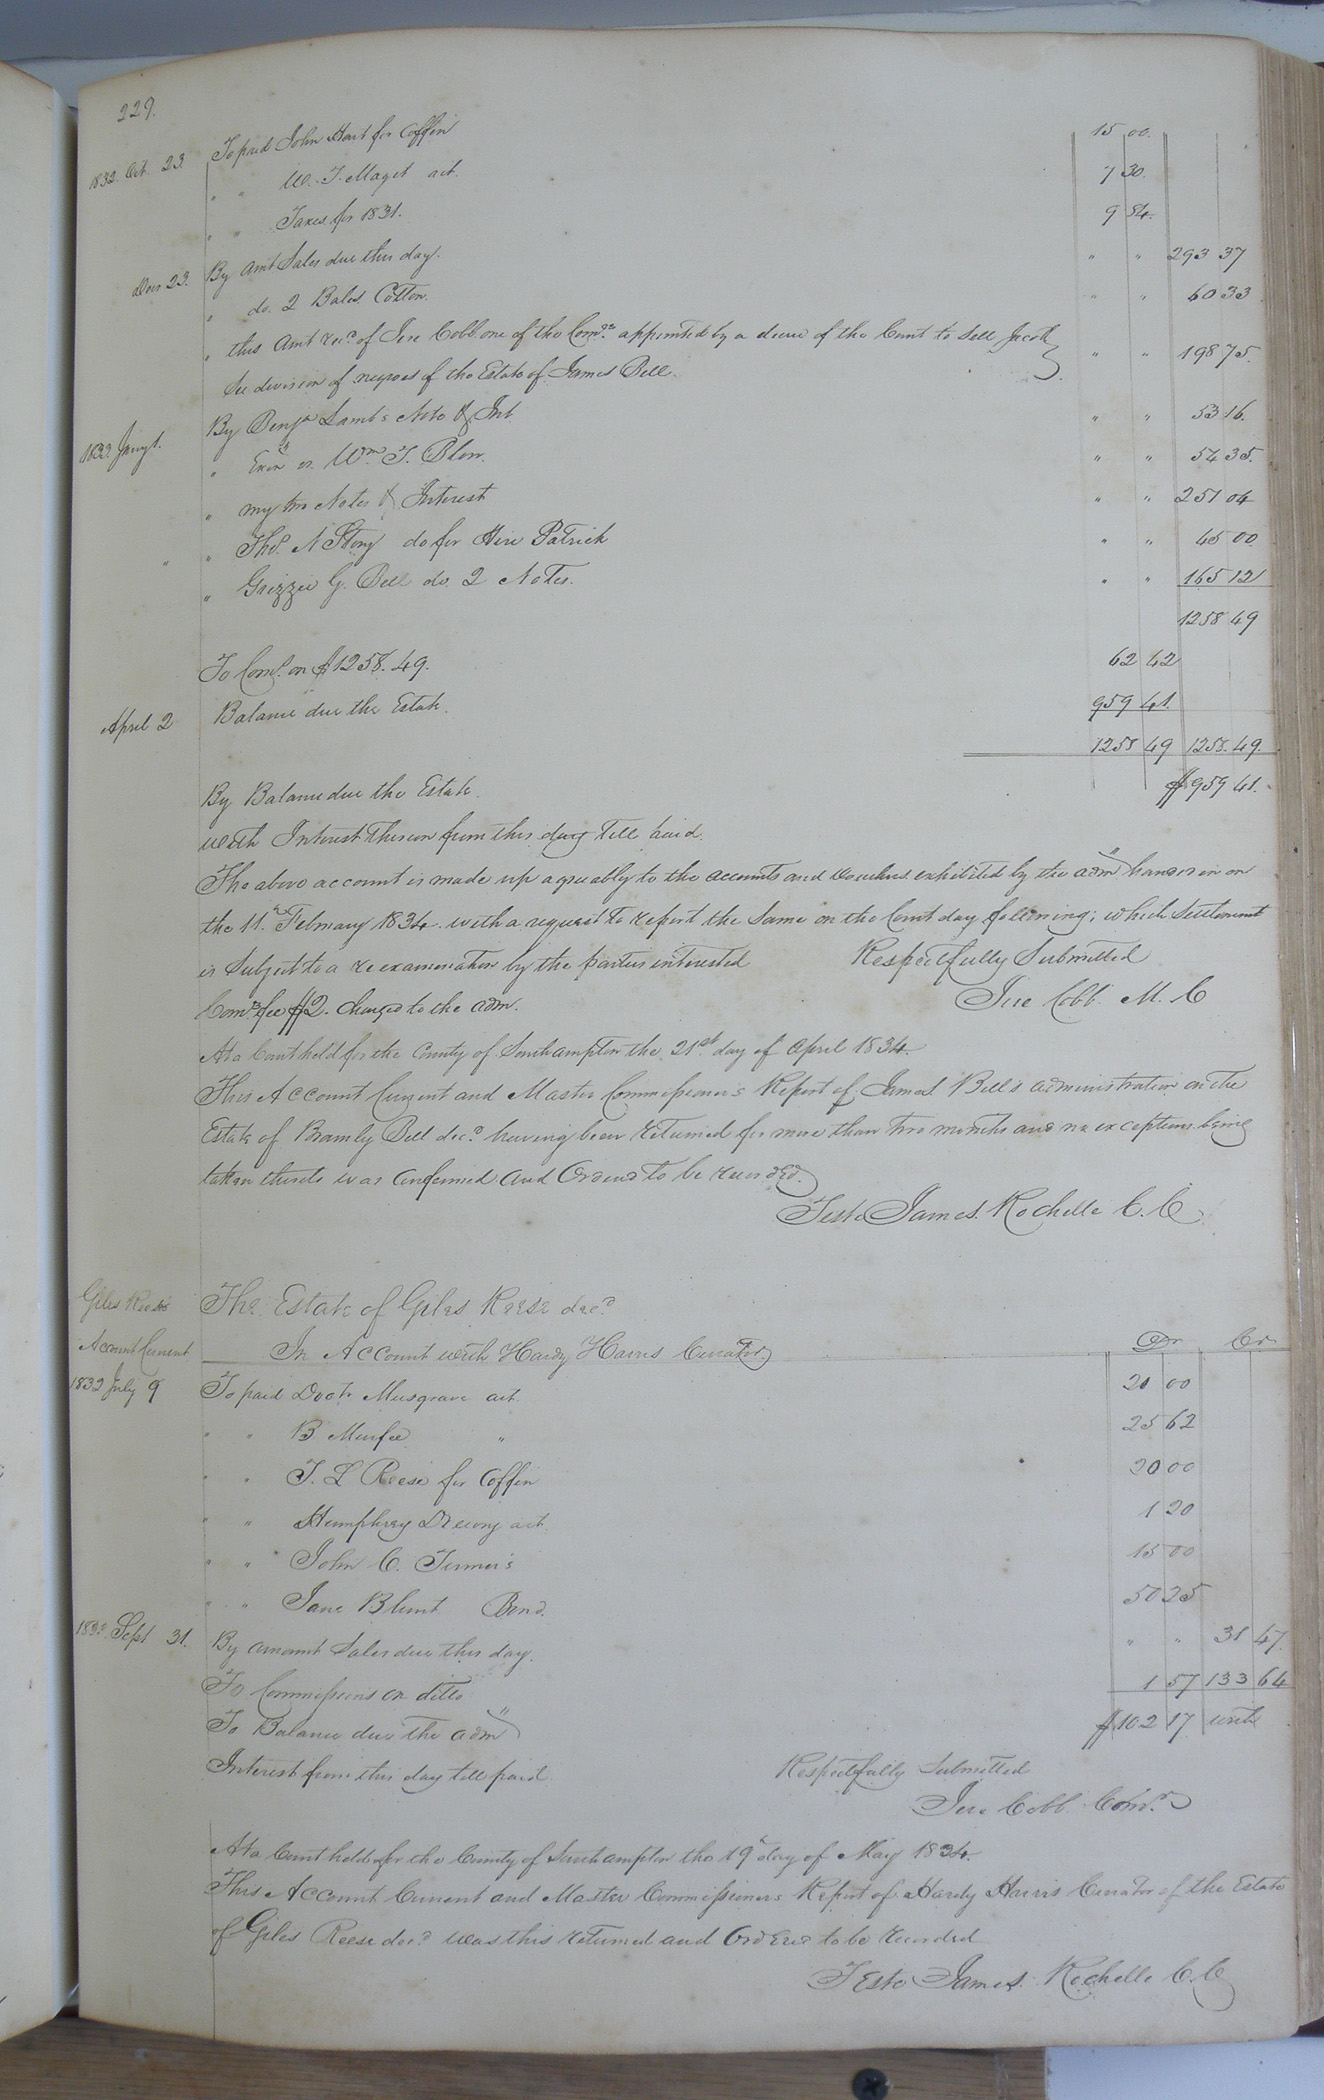 229.
1832. Oct. 23 To paid John Hart for Coffin 15 00.
" " W. T. Maget act. 7 30.
" " Taxes for 1831. 9 84.
Decr 23. By amt Sales due this day. " " 293 37
" do. 2 Bales Cotton. " " 60 33
" this Amt recd of Jere Cobb one of the Comrs appointed by a decree of the Court to sell Jacob
See division of negroes of the Estate of James Bell. " " 198 75.
1833. Jany 1. By Benja Lamb's Note & Int " " 53 16.
" Wm. T. Blow. " " 54 35.
" my two Notes & Interest " " 251 04
" Thos. N do for Hire Patrick " " 45 00
" Grizzie G. Bell do. 2 Notes. " " 165 12
1258 49
To Coms. on $1258. 49. 62 42
April 2 Balance due the Estate. 959 41.
1258 49 1258. 49.
By Balance due the Estate. $959 41.
with Interest thereon from this day till paid.
The above account is made up agreeably to the accounts and vouchers exhibited by the admr handed in on
the 11th February 1834 with a request to report the same on the Court day following; which Settlement
is Subject to a reexamination by the parties interested Respectfully Submitted
Comrs fee $2. charged to the adm. Jere Cobb. M. C
At a Court held for the County of Southampton the 21st day of April 1834.
This Account Current and Master Commissioner's Report of James Bell's administration on the
Estate of Bramly Bell decd. having been returned for more than two months and no exceptions being
taken thereto was Confirmed and Ordered to be recorded.
Teste James Rochelle C. C
Giles Reese's The Estate of Giles Reese decd
Account Current In Account with Hardy Harris Curator. Dr Cr
1832 July 9 To paid Doctr Musgrave act. 20 00
" " B Murfee " 25 62
" " T. L Reese for Coffin 20 00
" " Humphrey Drewry act. 1 20
" " John C. Turner's 15 00
" " Jane Blunt Bond. 50 25
Sept 31. By amount Sales due this day. " " 31 47
To Commissions on ditto 1 57 133 64
To Balance due the admr $102 17 with
Interest from this day till paid. Respectfully Submitted
Jere Cobb Comr.
At a Court held for the County of Southampton the 19th day of May 1834.
This Account Current and Master Commissioners Report of Hardy Harris Curator of the Estate
of Giles Reese decd was this returned and Ordered to be recorded
Teste James Rochelle C. C